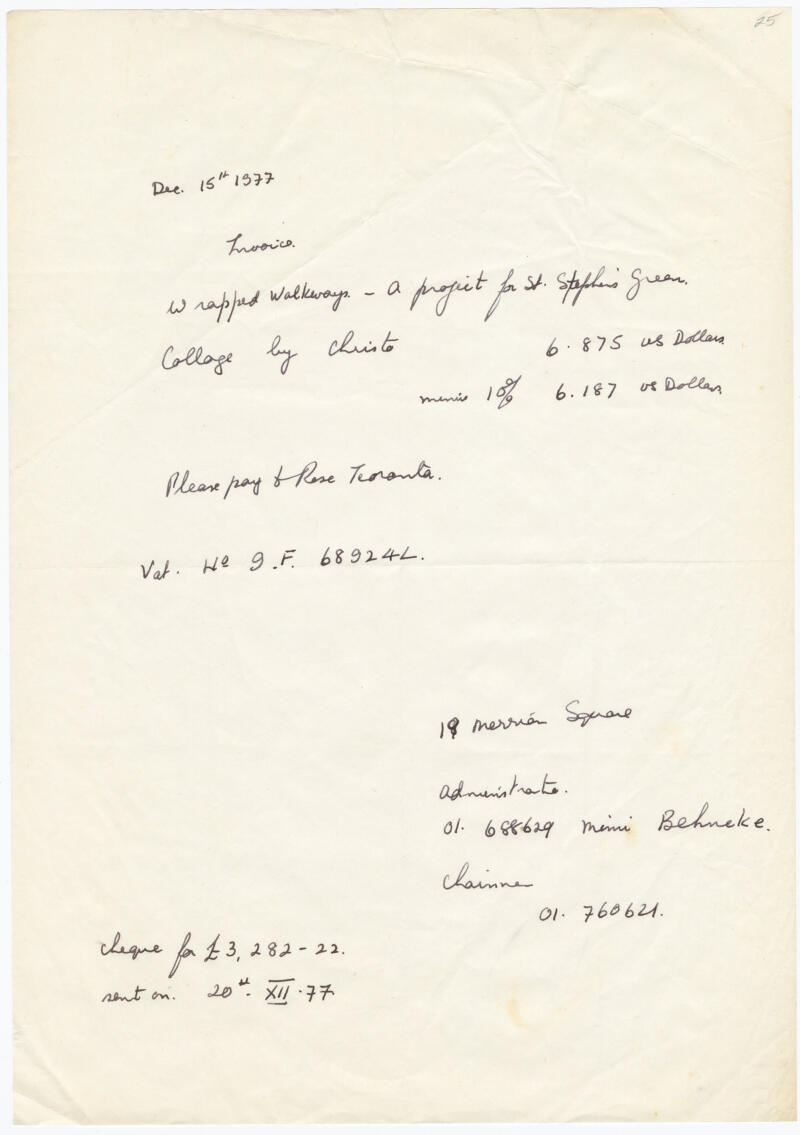 25
Dec. 15th 1977
Invoice.
Wrapped Walkways. - A project for St. Stephen's Green.
Collage by Christo 6.875 US Dollars
minus 10% 6.187 US Dollars
Please pay to Rose Teoranta.
Vat. No 9.F. 68924L.
19 Merrion Square
Administrator.
01. 688629 Mimi Behncke.
Chairman
01. 760621.
cheque for £3,282-22.
sent on. 20th. XII.77